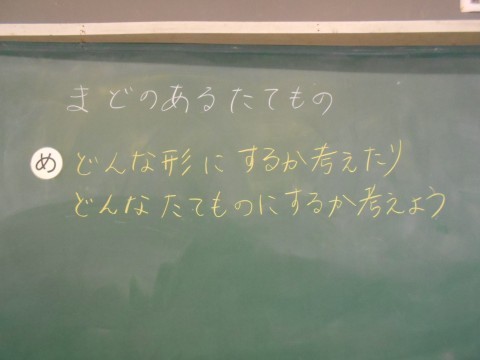 まどのあるたてもの
め どんな形にするか考えたり
どんなたてものにするか考えよう